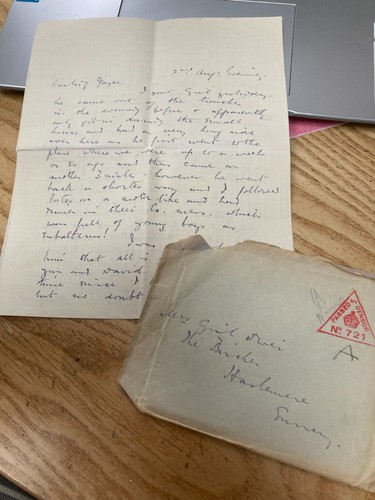 2nd Aug: Evening.
I saw Gril yesterday.
he came out of the trenches
in the evening before & apparently
only got in during the small
hours and had a very long ride
over here as he first went to the
place where we were up to a week
or so ago and then came on
another 3 miles however he went
back a shorter way and I followed
later on a motor bike and had
dinner in their Co. mess. which
was full of young boys as
subalterns! I was
him that all is
you and David
time since I
but no doubt
PASSED BY CENSOR
No 721
A
Mrs Gril
The Burches
Haslemere
Surrey.